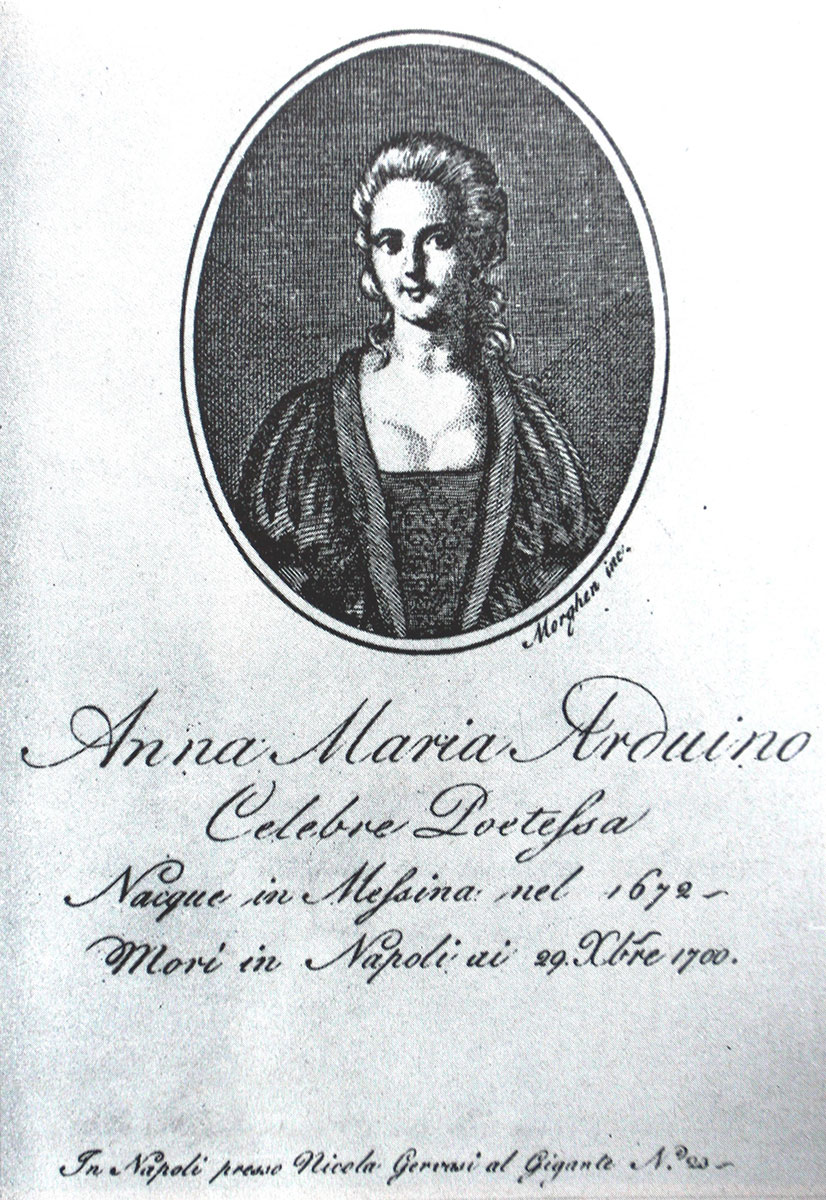 Morghen inc.
Anna Maria Arduino
Celebre Poetessa
Nacque in Messina nel 1672
Morì in Napoli ai 29. Xbre 1700.
In Napoli presso Nicola Gervasi al Gigante N.º 23